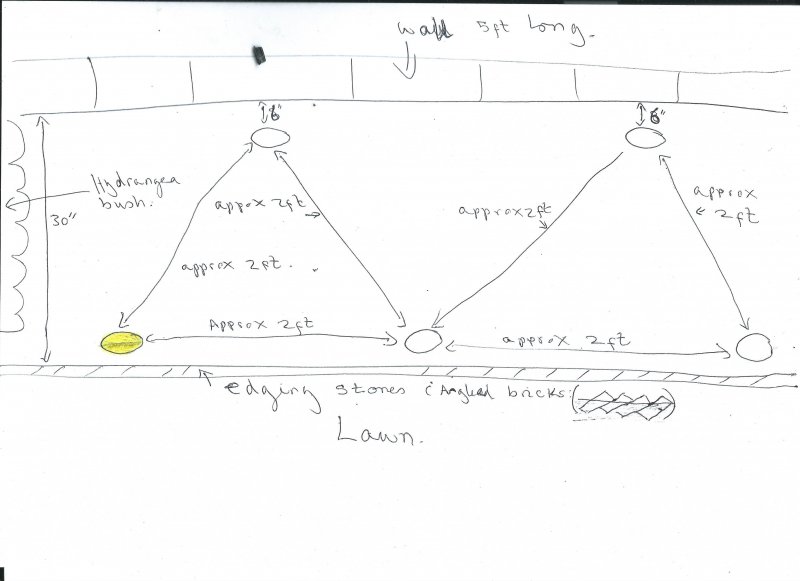 wall 5ft Long.
6"
6"
Hydrangea
bush.
30"
approx 2ft
approx 2ft
approx
2ft
approx 2ft.
Approx 2ft
approx 2ft
edging stones (Angled bricks:
Lawn.